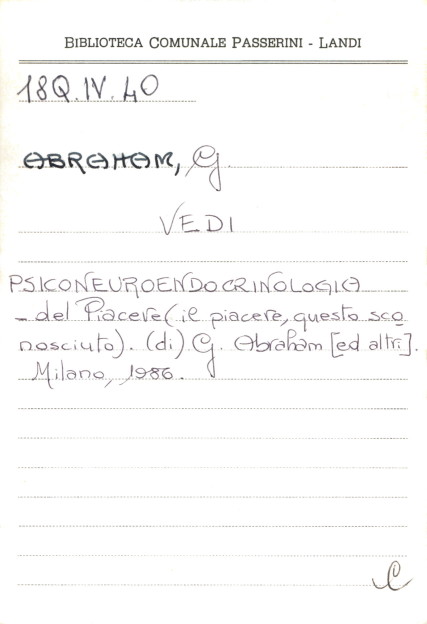 BIBLIOTECA COMUNALE PASSERINI - LANDI
18Q.IV.40
ABRAHAM, G.
VEDI
PSICONEUROENDOCRINOLOGIA
- del Piacere (il piacere, questo sco
nosciuto). (di) G. Abraham [ed altri].
Milano, 1986.
C